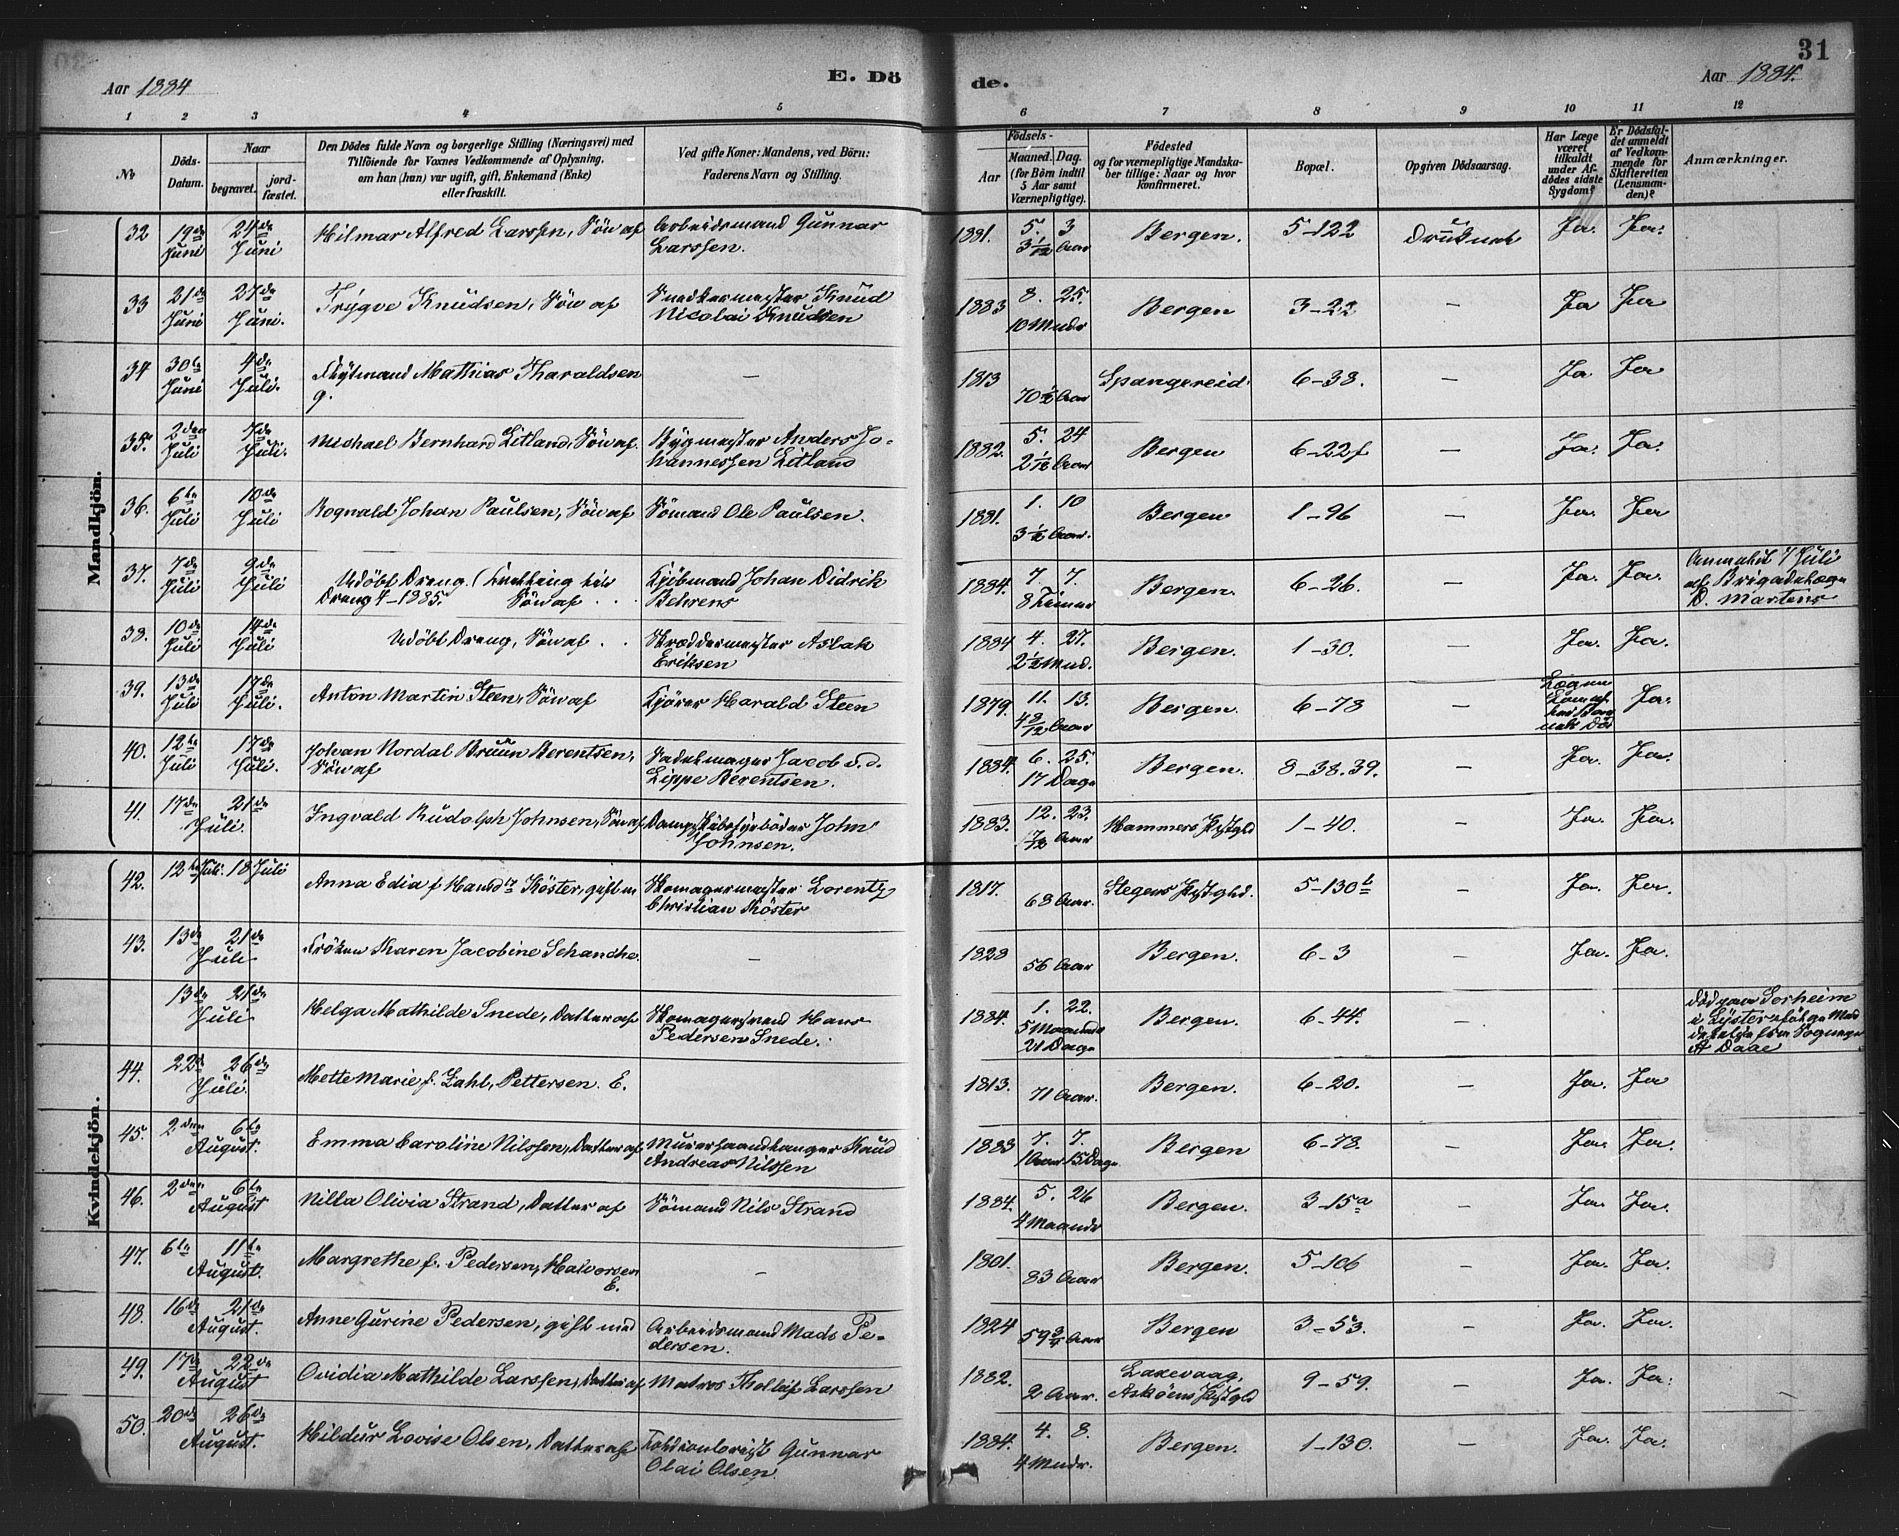 31
Aar 1884
E. Dö
de.
Aar 1884.
1 2 3 4 5 6 7 8 9 10 11 12
No
Döds-Datum.
Naar
begravet.
jord-fæstet.
Den Dödes fulde Navn og borgerlige Stilling (Næringsvei) med
Tilföiende for Voxnes Vedkommende af Oplysning,
om han (hun) var ugift, gift, Enkemand (Enke)
eller fraskilt.
Ved gifte Koner: Mandens, ved Börn:
Faderens Navn og Stilling.
Födsels-
Aar
Maaned. Dag.
(for Börn indtil
5 Aar samt
Værnepligtige).
Födested
og for værnepligtige Mandska-
ber tillige: Naar og hvor
konfirmeret.
Bopæl.
Opgiven Dödsaarsag.
Har Læge
været
tilkaldt
under Af-
dödes sidste
Sygdom?
Er Dödsfal-
det anmeldt
af Vedkom-
mende for
Skifteretten
(Lensman-
den)?
Anmærkninger.
Mandkjön.
32 19de Juni 24de Juni Hilmar Alfred Larssen, Sön af Arbeidsmand Gunnar Larssen. 1881. 5. 3 3 1/12 Aar Bergen. 5-122 Druknet Ja. Ja.
33 21de Juni 27de Juni. Trygve Knudsen, Sön af Snedkermester Knud Nicolai Knudsen 1883 8. 25. 10 Mndr Bergen 3-22 - Ja Ja
34 30te Juni 4de Juli. Mathias Tharaldsen g. - 1813 70 1/2 Aar Spangereid. 6-38. - Ja Ja
35. 2den Juli 7de Juli. Michael Bernhard Litland, Sön af. Bygmester Anders Johannessen Litland 1882. 5. 24 Aar Bergen 6-22f - Ja. Ja.
36. 6te Juli 10de Juli Rognald Johan Paulsen, Sön af Sömand Ole Paulsen. 1881. 1. 10 3 1/2 Aar. Bergen 1-96 - Ja. Ja
37. 7de Juli 9de Juli Udöbt Dreng. Sön af Kjöbmand Johan Didrik Behrens 1884. 7. 7. 8 Timer Bergen. 6-26. - Ja. Ja. Anmeldt Juli af Brigadelæge D. Martens
38. 10de Juli 14de Juli Udöbt Dreng, Sön af Skræddermester Aslak Eriksen 1884 4. 27. 2 1/2 Mnd. Bergen. 1-30. - Ja. Ja.
39. 13de Juli 17de Juli. Anton Martin Steen, Sön af Kjörer Harald Steen 1879. 11. 13. Aar Bergen. 6-78 - Lægen Ja.
40. 12te Juli 17de Juli. Johan Nordal Bruun Berentsen, Sön af Sadelmager Jacob v.d. Lippe Berentsen. 1884. 6. 25. 17 Dage Bergen. 8-38.39. - Ja. Ja.
41. 17de 21de Juli. Ingvald Rudolph Johnsen, Sön af Dampskibsfyrböder John Johnsen. 1883. 12. 23. 7/12 Aar Hammers Pstgld 1-40. - Ja. Ja.
Kvindekjön.
42. 12te Juli. 18 Juli Anna Edia f. Köster, gift m Skomagermester Lorentz Christian Köster 1817. 68 Aar. Stegens Pstgld. 5-130b - Ja. Ja.
43. 13de 21de Juli Fröken Karen Jacobine Schanche. - 1828 56 Aar Bergen. 6-3 - Ja. Ja.
13de 21de Juli Helga Mathilde Snede, Datter af Skomagersvend Hans Pedersen Snede. 1884. 1. 22. 5 Maaneder 21 Dage Bergen. 6-44. Död paa Sorheim i Lyster Daae
44. 22de 26de Juli. Mette Marie f. Zahl, Pettersen. E. 1813. 71 Aar. Bergen. 6-20. - Ja. Ja
45. 2den 6te August. Emma Caroline Nilssen, Datter af Murerhaandlanger Knud Andreas Nilssen 1883 7. 7. 1 Aar 15 Dage Bergen 6-78. - Ja. Ja.
46. 2den 6te August Nilla Olivia Strand, Datter af Sömand Nils Strand 1884. 5. 26 4 Maaneder Bergen. 3-15a - Ja. Ja.
47. 6te 11te August. Margrethe f. Pedersen, Halvorsen E. - 1801. 83 Aar Bergen. 5-106 - Ja. Ja.
48. 16de 21de August. Anne Gurine Pedersen, gift med Arbeidsmand Mads Pedersen. 1824 59 3/4 Aar Bergen 3-53. - Ja. Ja.
49. 17de 22de August Ovidia Mathilde Larssen, Datter af Matros Larssen 1882. 2 Aar. Laxevaag, Asköens Pstgld 9-59. - Ja. Ja.
50. 20de 26de August. Hildur Lovise Olsen, Datter af Toldkontorist Gunnar Olai Olsen 1884. 4. 8. 4 Mndr. Bergen. 1-130. - Ja. Ja.